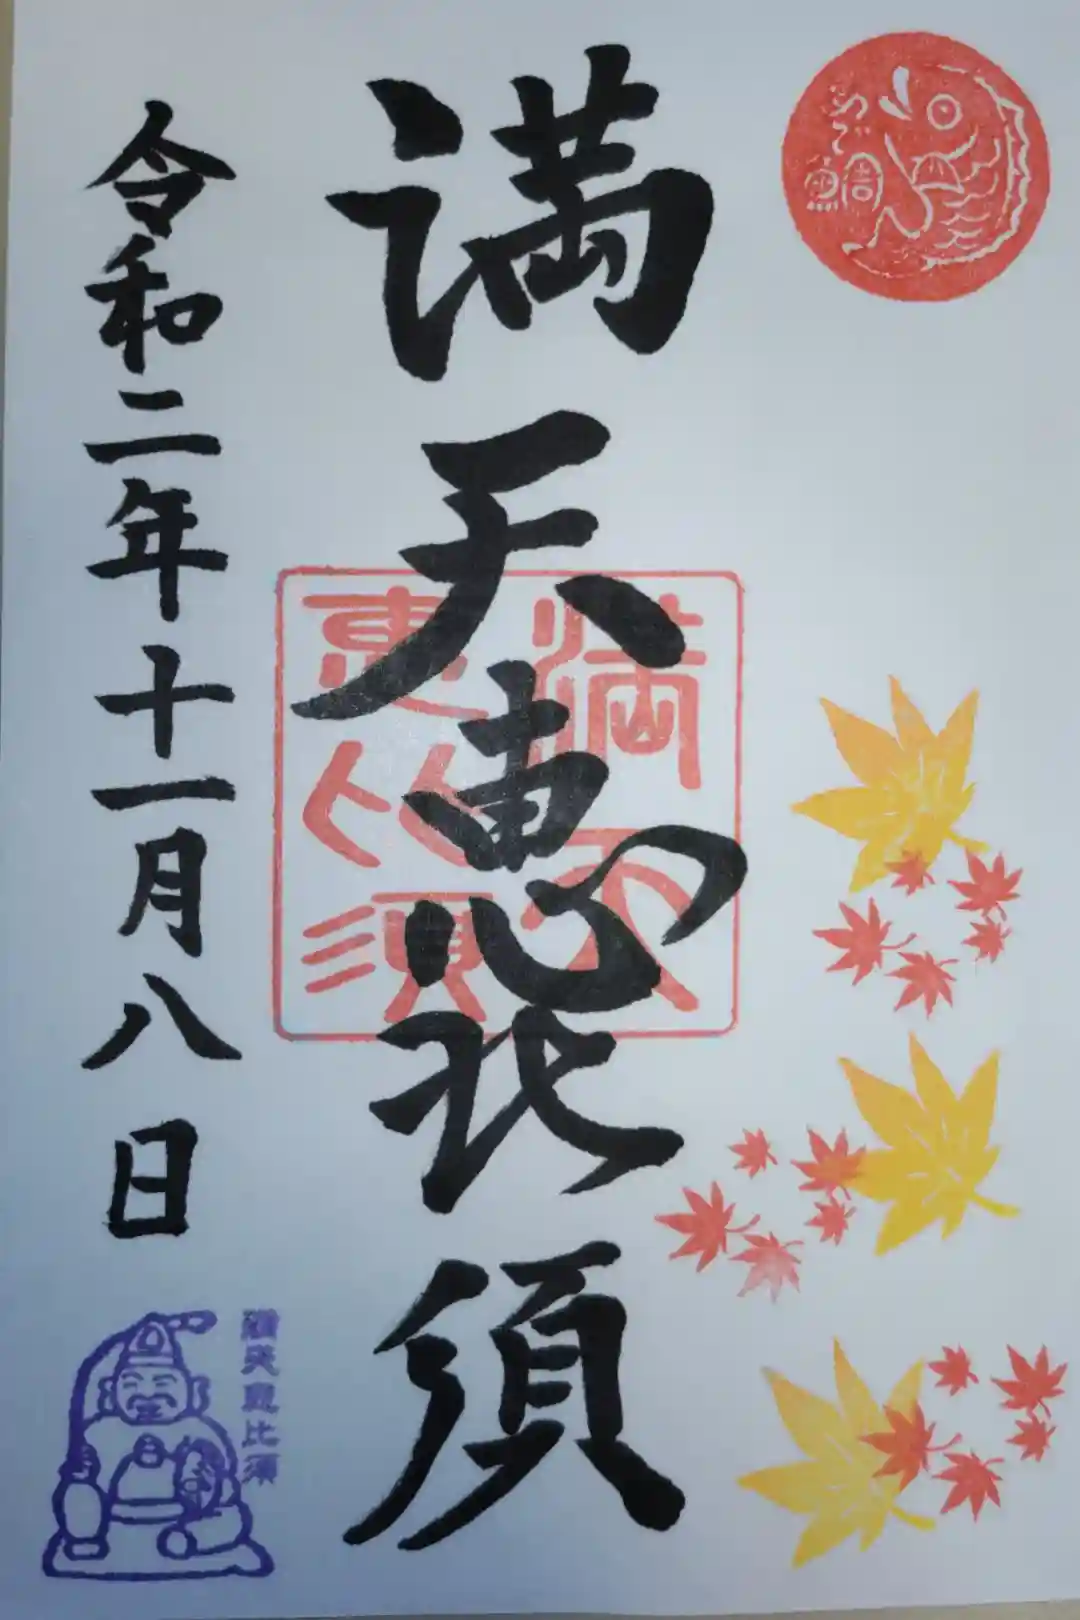 めで鯛
満天恵比須
満天
恵比須
令和二年十一月八日
満天恵比須